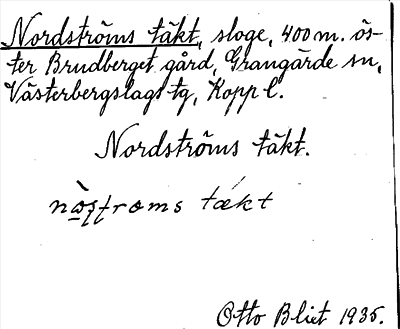 Nordströms täkt, sloge, 400 m. ös-
ter Brudberget gård, Grangärde sn,
Västerbergslags tg, Kopp l.
Nordströms täkt.
Otto Blixt 1935.